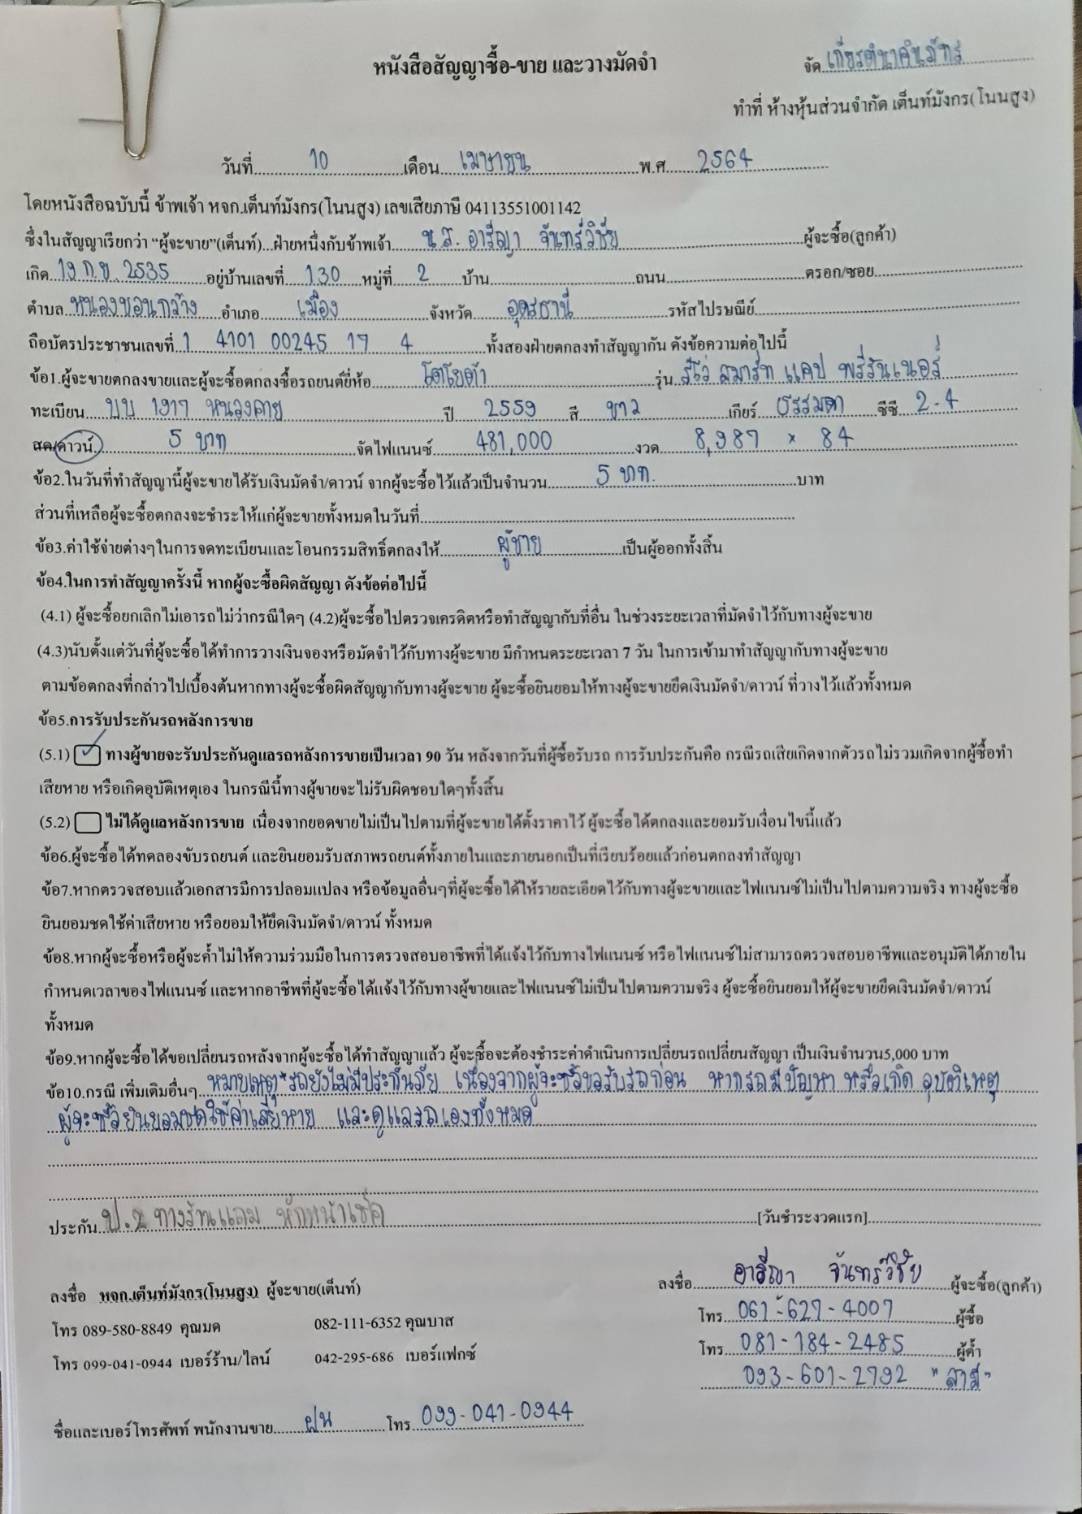 หนังสือสัญญาซื้อ-ขาย และวางมัดจำ
จัด เกียรตินาคินภัทร
ทำที่ ห้างหุ้นส่วนจำกัด เต็นท์มังกร(โนนสูง)
วันที่ 10 เดือน เมษายน พ.ศ. 2564
โดยหนังสือฉบับนี้ ข้าพเจ้า หจก.เต็นท์มังกร(โนนสูง) เลขเสียภาษี 04113551001142
ซึ่งในสัญญาเรียกว่า "ผู้จะขาย"(เต็นท์)...ฝ่ายหนึ่งกับข้าพเจ้า น.ส. อารีญา จันทร์วิชัย ผู้จะซื้อ(ลูกค้า)
เกิด 19 ก.ย. 2535 อยู่บ้านเลขที่ 130 หมู่ที่ 2 บ้าน ถนน ตรอก/ซอย
ตำบล หนองขอนกว้าง อำเภอ เมือง จังหวัด อุดรธานี รหัสไปรษณีย์
ถือบัตรประชาชนเลขที่ 1 4101 00245 17 4 ทั้งสองฝ่ายตกลงทำสัญญากัน ดังข้อความต่อไปนี้
ข้อ1.ผู้จะขายตกลงขายและผู้จะซื้อตกลงซื้อรถยนต์ยี่ห้อ โตโยต้า รุ่น รีโว่ สมาร์ท แคป พรีรันเนอร์
ทะเบียน บบ 1917 หนองคาย ปี 2559 สี ขาว เกียร์ ธรรมดา ซีซี 2.4
สด/ดาวน์ 5 บาท จัดไฟแนนซ์ 481,000 งวด 8,987 × 84
ข้อ2.ในวันที่ทำสัญญานี้ผู้จะขายได้รับเงินมัดจำ/ดาวน์ จากผู้จะซื้อไว้แล้วเป็นจำนวน 5 บาท. บาท
ส่วนที่เหลือผู้จะซื้อตกลงจะชำระให้แก่ผู้จะขายทั้งหมดในวันที่
ข้อ3.ค่าใช้จ่ายต่างๆในการจดทะเบียนและโอนกรรมสิทธิ์ตกลงให้ ผู้ขาย เป็นผู้ออกทั้งสิ้น
ข้อ4.ในการทำสัญญาครั้งนี้ หากผู้จะซื้อผิดสัญญา ดังข้อต่อไปนี้
(4.1) ผู้จะซื้อยกเลิกไม่เอารถไม่ว่ากรณีใดๆ (4.2)ผู้จะซื้อไปตรวจเครดิตหรือทำสัญญากับที่อื่น ในช่วงระยะเวลาที่มัดจำไว้กับทางผู้จะขาย
(4.3)นับตั้งแต่วันที่ผู้จะซื้อได้ทำการวางเงินจองหรือมัดจำไว้กับทางผู้จะขาย มีกำหนดระยะเวลา 7 วัน ในการเข้ามาทำสัญญากับทางผู้จะขาย
ตามข้อตกลงที่กล่าวไปเบื้องต้นหากทางผู้จะซื้อผิดสัญญากับทางผู้จะขาย ผู้จะซื้อยินยอมให้ทางผู้จะขายยึดเงินมัดจำ/ดาวน์ ที่วางไว้แล้วทั้งหมด
ข้อ5.การรับประกันรถหลังการขาย
(5.1) ✓ ทางผู้ขายจะรับประกันดูแลรถหลังการขายเป็นเวลา 90 วัน หลังจากวันที่ผู้ซื้อรับรถ การรับประกันคือ กรณีรถเสียเกิดจากตัวรถ ไม่รวมเกิดจากผู้ซื้อทำ
เสียหาย หรือเกิดอุบัติเหตุเอง ในกรณีนี้ทางผู้ขายจะไม่รับผิดชอบใดๆทั้งสิ้น
(5.2) ไม่ได้ดูแลหลังการขาย เนื่องจากยอดขายไม่เป็นไปตามที่ผู้จะขายได้ตั้งราคาไว้ ผู้จะซื้อได้ตกลงและยอมรับเงื่อนไขนี้แล้ว
ข้อ6.ผู้จะซื้อได้ทดลองขับรถยนต์ และยินยอมรับสภาพรถยนต์ทั้งภายในและภายนอกเป็นที่เรียบร้อยแล้วก่อนตกลงทำสัญญา
ข้อ7.หากตรวจสอบแล้วเอกสารมีการปลอมแปลง หรือข้อมูลอื่นๆที่ผู้จะซื้อได้ให้รายละเอียดไว้กับทางผู้จะขายและไฟแนนซ์ไม่เป็นไปตามความจริง ทางผู้จะซื้อ
ยินยอมชดใช้ค่าเสียหาย หรือยอมให้ยึดเงินมัดจำ/ดาวน์ ทั้งหมด
ข้อ8.หากผู้จะซื้อหรือผู้จะค้ำไม่ให้ความร่วมมือในการตรวจสอบอาชีพที่ได้แจ้งไว้กับทางไฟแนนซ์ หรือไฟแนนซ์ไม่สามารถตรวจสอบอาชีพและอนุมัติได้ภายใน
กำหนดเวลาของไฟแนนซ์ และหากอาชีพที่ผู้จะซื้อได้แจ้งไว้กับทางผู้ขายและไฟแนนซ์ไม่เป็นไปตามความจริง ผู้จะซื้อยินยอมให้ผู้จะขายยึดเงินมัดจำ/ดาวน์
ทั้งหมด
ข้อ9.หากผู้จะซื้อได้ขอเปลี่ยนรถหลังจากผู้จะซื้อได้ทำสัญญาแล้ว ผู้จะซื้อจะต้องชำระค่าดำเนินการเปลี่ยนรถเปลี่ยนสัญญา เป็นเงินจำนวน5,000 บาท
ข้อ10.กรณี เพิ่มเติมอื่นๆ หมายเหตุ*รถยังไม่มีประกันภัย เนื่องจากผู้จะซื้อขอรับรถก่อน หากรถมีปัญหา หรือเกิด อุบัติเหตุ
ผู้จะซื้อยินยอมชดใช้ค่าเสียหาย และดูแลรถเองทั้งหมด
ประกัน ป.2 ทางร้านแถม หักหน้าเช็ค [วันชำระงวดแรก]
ลงชื่อ หจก.เต็นท์มังกร(โนนสูง) ผู้จะขาย(เต็นท์) ลงชื่อ อารีญา จันทร์วิชัย ผู้จะซื้อ(ลูกค้า)
โทร 089-580-8849 คุณมด 082-111-6352 คุณบาส โทร 061-627-4007 ผู้ซื้อ
โทร 099-041-0944 เบอร์ร้าน/ไลน์ 042-295-686 เบอร์แฟกซ์ โทร 081-184-2485 ผู้ค้ำ
093-601-2792
ชื่อและเบอร์โทรศัพท์ พนักงานขาย ฝน โทร 099-041-0944